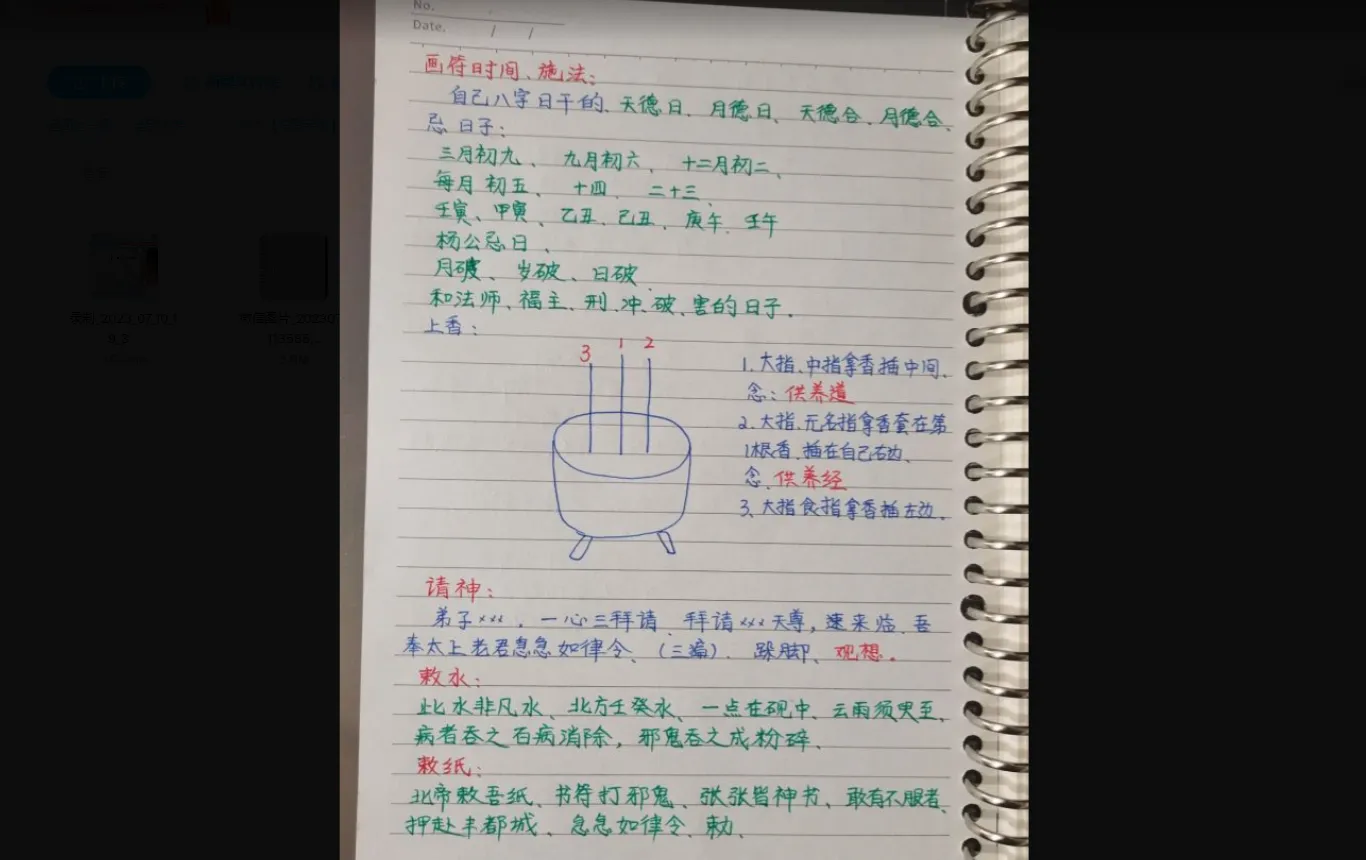 No.
Date.
画符时间、施法:
自己八字日干的、天德日、月德日、天德合、月德合、
忌日子:
三月初九、九月初六、十二月初二、
每月初五、十四、二十三、
壬寅、甲寅、乙丑、己丑、庚午、壬午
杨公忌日、
月破、岁破、日破、
和法师、福主、刑、冲、破、害的日子。
上香:
3 1 2
1、大指、中指拿香插中间、
念:供养道
2、大指、无名指拿香套在第
1根香、插在自己右边、
念、供养经
3、大指食指拿香插左边。
请神:
弟子×××,一心三拜请、拜请×××天尊,速来临、吾
奉太上老君急急如律令、(三遍)、跺脚、观想。
敕水:
此水非凡水、北方壬癸水、一点在砚中、云雨须臾至、
病者吞之百病消除,邪鬼吞之成粉碎、
敕纸:
北帝敕吾纸、书符打邪鬼、张张皆神书、敢有不服者、
押赴丰都城、急急如律令、勅、